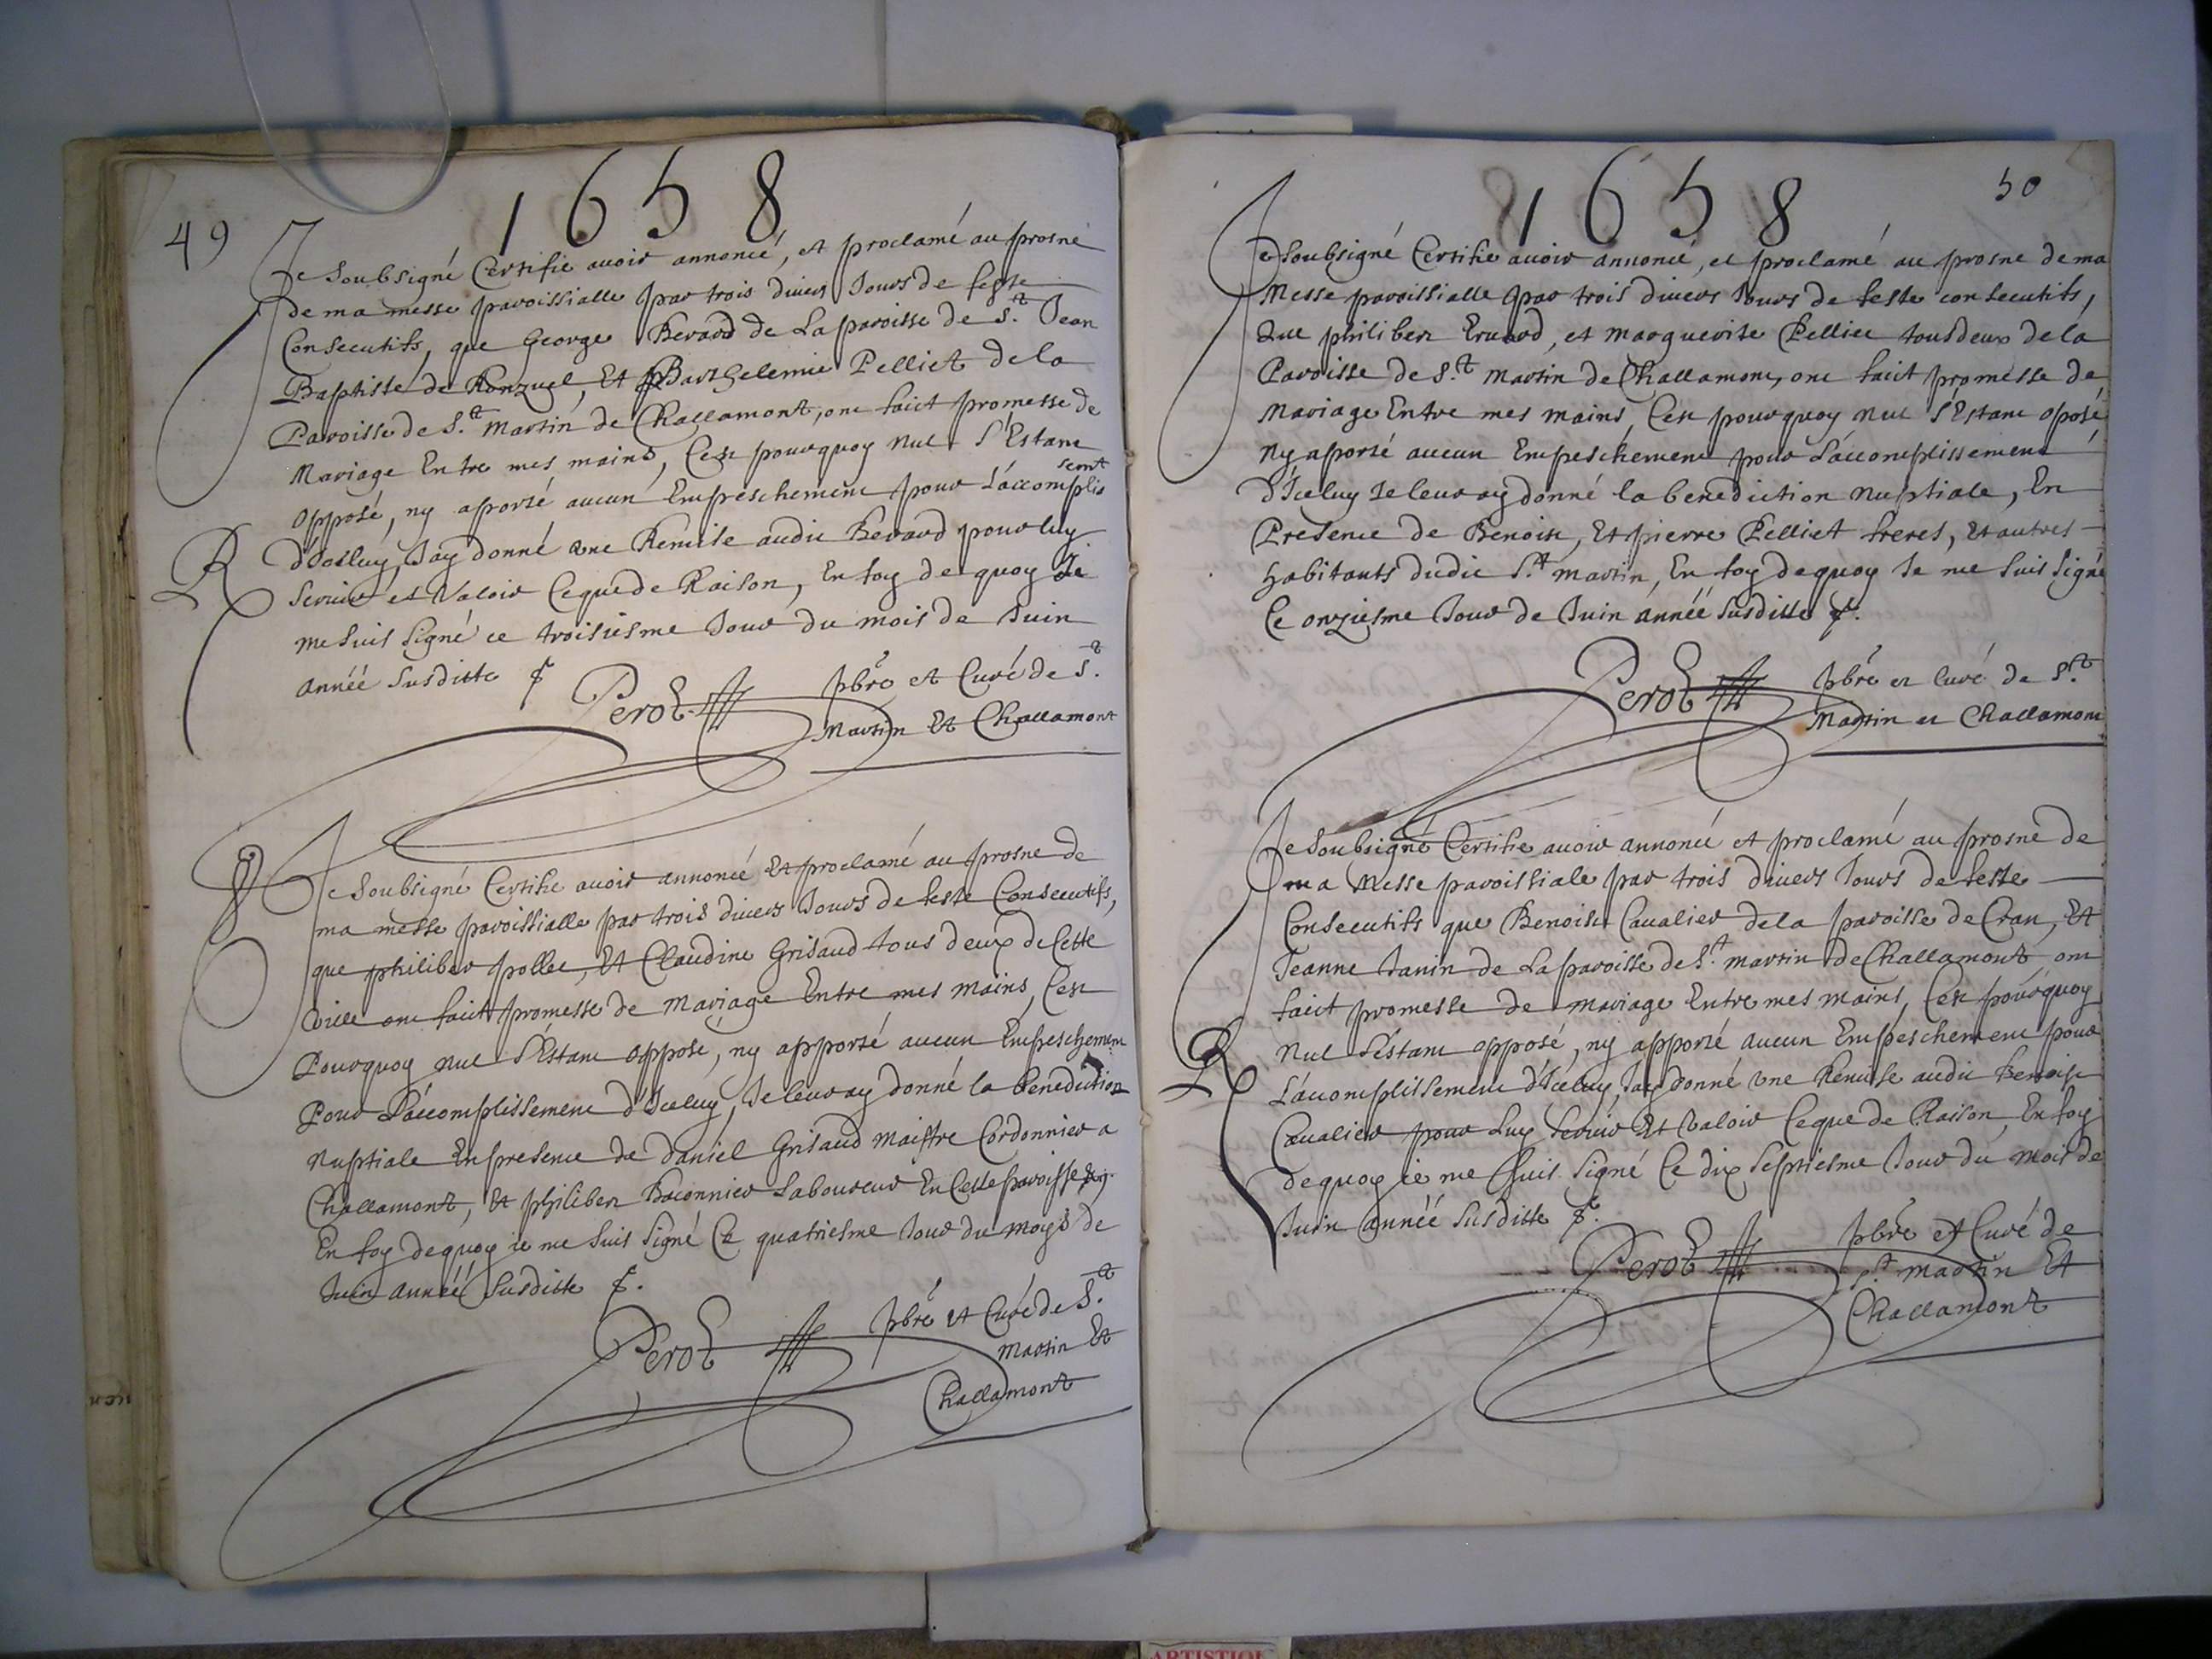 1658
49
Je Soubsigné Certifie auoir annoncé, et proclamé au prosne
de ma messe paroissialle par trois diuers Jours de feste
Consecutifs, que George Berard de La paroisse de S.t Jean
Baptiste de Ronzuel, Et Barthelemie Pelliet de la
Paroisse de S.t Martin de Challamont, ont faict promesse de
Mariage Entre mes mains, Cest pourquoy Nul S'Estant
opposé, ny aporté aucun Empeschement pour L'accomplis
sem.t
d'Iceluy, Jay donné une Remise audit Berard pour luy
R
Seruir et Valoir Ceque de Raison, En foy de quoy Je
me suis Signé ce troisiesme Jour du mois de Juin
année Susditte
Perot pbre et Curé de S.t
Martin Et Challamont
Je Soubsigné Certifie auoir annoncé Et proclamé au prosne de
ma messe paroissialle par trois diuers Jours de feste Consecutifs,
que philiber pollet, Et Claudine Grisaud tous deux de Cette
Ville ont faict promesse de Mariage Entre mes mains, Cest
Pourquoy Nul S'Estant opposé, ny apporté aucun Empeschement
Pour L'accomplissement d'Iceluy, Je leur ay donné la Benediction
Nuptiale En presence de Daniel Grisaud Maistre Cordonnier a
Challamont, Et philibert Baconnier Laboureur En Cette paroisse
En foy dequoy ie me suis Signé Ce quatriesme Jour du Moys de
Juin année Susditte
Perot pbre et Curé de S.t
Martin Et
Challamont
1658
50
Je Soubsigné Certifie auoir annoncé, et proclamé au prosne de ma
Messe paroissialle par trois diuers Jours de feste consecutifs,
Que philiber Eruard, et Marguerite Pelliet tous deux de la
Paroisse de S.t Martin de Challamont, ont faict promesse de
Mariage Entre mes mains, Cest pourquoy Nul S'Estant oposé
Ny aporté aucun Empeschement pour L'accomplissement
d'Iceluy Je leur ay donné la benediction Nuptiale, En
Presence de Benoist, Et pierre Pelliet freres, Et autres
habitants dudit S.t Martin, En foy dequoy Je me suis Signé
Ce onziesme Jour de Juin année Susditte
Perot pbre et Curé de S.t
Martin et Challamont
Je Soubsigné Certifie auoir annoncé et proclamé au prosne de
ma Messe paroissiale par trois diuers Jours de feste
Consecutifs que Benoist Caualier de la paroisse de Cran, Et
Jeanne Janin de La paroisse de S.t Martin de Challamont ont
faict promesse de mariage Entre mes mains, Cest pourquoy
Nul S'estant opposé, ny apporté aucun Empeschement pour
R
L'accomplissement d'Iceluy, Jay donné une Remise audit Benoist
Caualier pour Luy Seruir Et Valoir Ceque de Raison, En foy
dequoy ie me Suis Signé Ce dix Septiesme Jour du Mois de
Juin année Susditte
Perot pbre et Curé de
S.t Martin Et
Challamont